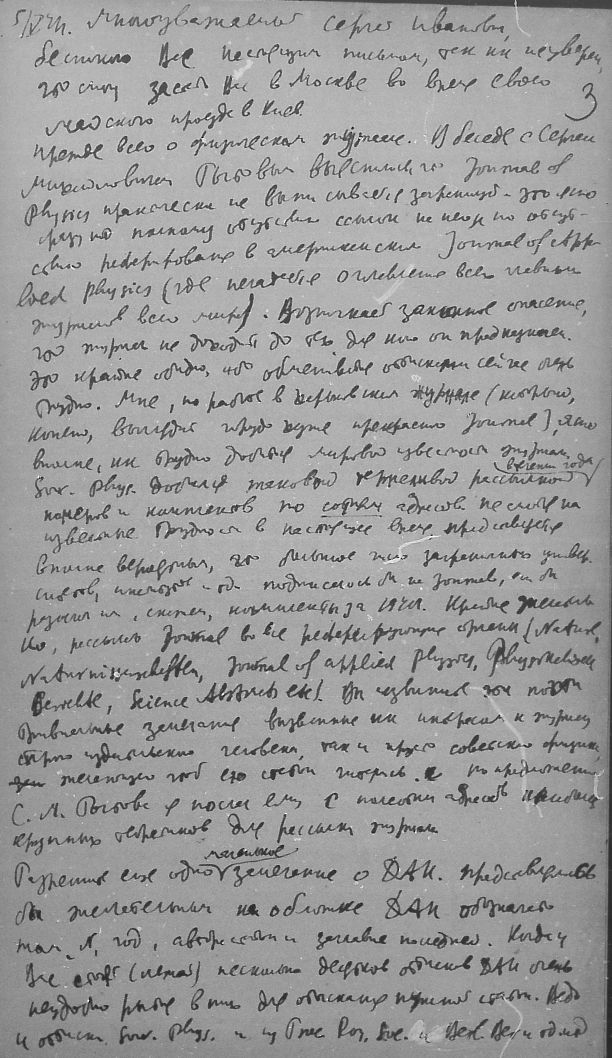 5/VI 41. Многоуважаемый Сергей Иванович,
беспокою Вас настоящим письмом, так как не уверен,
что смогу застать Вас в Москве во время своего
проезда в Киев.
3
Прежде всего о физическом журнале. В беседе с Сергеем
Михайловичем Рытовым выяснилось, что Journal of
Physics практически не выписывается заграницей - это ясно
сразу по полному отсутствию ссылок на него и по отсут-
ствию реферирования в американском Journal of App-
lied Physics (где печатается оглавление всех главных
журналов всего мира). Возникает законное опасение,
что журнал не доходит до тех, для кого он предназначен.
Это крайне обидно, что обмениваться оттисками сейчас очень
трудно. Мне, по работе в харьковском журнале (который,
конечно, выглядит гораздо хуже прекрасного Journal), ясно
вполне, как трудно добиться мировой известности журнала.
Sow. Phys. добился таковой терпеливой рассылкой
в течении года
номеров и комплектов по сотням адресов. Несмотря на
известные трудности в настоящее время, представляется
вполне вероятным, что большое число заграничных универ-
ситетов, институтов и т.д. подписалось бы на Journal, если бы
разослать им, скажем, комплекты за 1940 г. Крайне желатель-
но, рассылать Journal во все реферирующие органы (Nature,
Naturwissenschaften, Journal of applied Physics, Physikalische
Berichte, Science Abstracts etc). Вы извините эти
замечания, вызванные как интересом к журналу
человека, так и просто советского физика,
желающего чтоб его статьи читались. По предложению
С. М. Рытова я послал ему с полсотни адресов наиболее
крупных теоретиков для рассылки журнала.
Разрешите еще одно замечание о ДАН. Представлялось
маленькое
бы желательным на обложке ДАН обозначать
том, №, год, автора статьи и заглавие последней. Когда у
Вас стоят (лежат) несколько десятков оттисков ДАН очень
неудобно рыться в них для отыскания нужной статьи. Ведь
и оттиски Sow. Phys. и из Proc. Roy. Soc. и